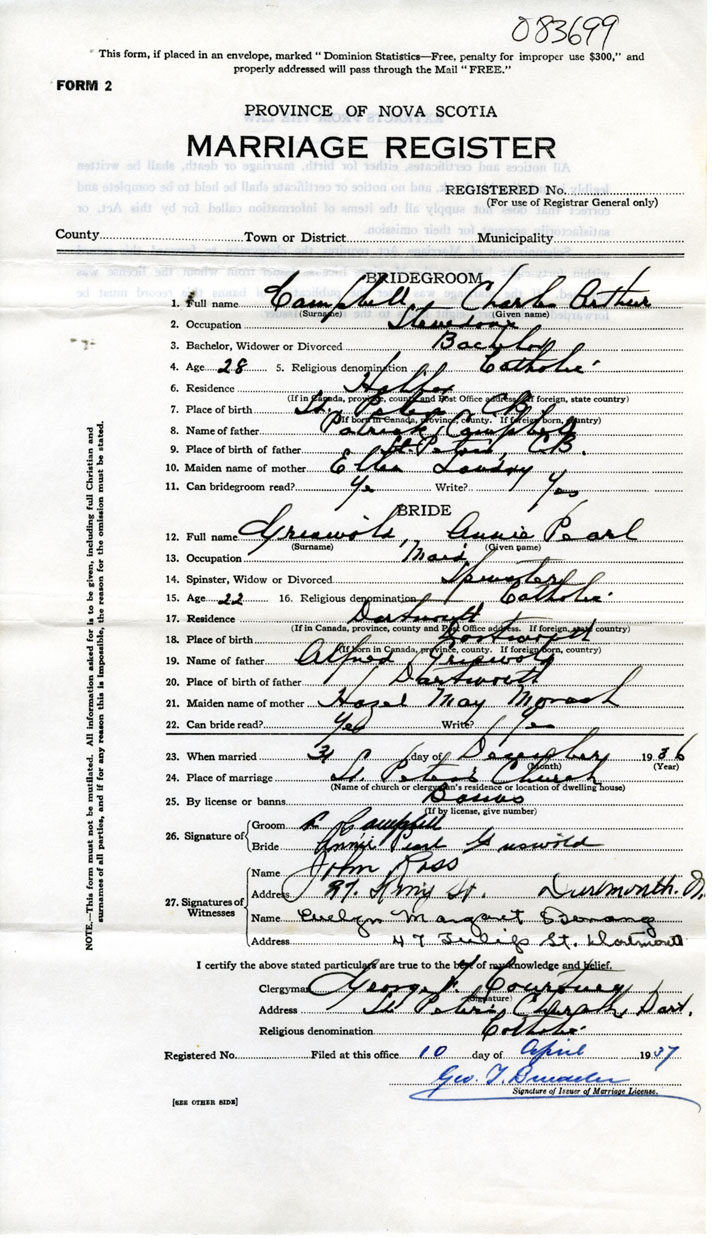 083699
"This form, if placed in an envelope, marked "Dominion Statistics—Free, penalty for improper use $300," and
properly addressed will pass through the Mail "FREE."
FORM 2
PROVINCE OF NOVA SCOTIA
MARRIAGE REGISTER
REGISTERED No.
(For use of Registrar General only)
County Town or District Municipality
BRIDEGROOM
1. Full name Campbell Charles Arthur
(Surname) (Given name)
2. Occupation Stevedore
3. Bachelor, Widower or Divorced Bachelor
4. Age 28 5. Religious denomination Catholic
6. Residence Halifax
(If in Canada, province, county and Post Office address. If foreign, state country)
7. Place of birth St. Peters CB.
(If born in Canada, province, county. If foreign born, country)
8. Name of father Patrick Campbell
9. Place of birth of father St. Peters, C.B.
10. Maiden name of mother Ellen Landry
11. Can bridegroom read? Yes Write? Yes
BRIDE
12. Full name Griswold, Annie Pearl
(Surname) (Given name)
13. Occupation Maid
14. Spinster, Widow or Divorced Spinster
15. Age 22 16. Religious denomination Catholic
17. Residence Dartmouth
(If in Canada, province, county and Post Office address. If foreign, state country)
18. Place of birth Dartmouth
(If born in Canada, province, county. If foreign born, country)
19. Name of father Alfred Griswold
20. Place of birth of father Dartmouth
21. Maiden name of mother Hazel May
22. Can bride read? Yes Write? Yes
23. When married 31 day of December 1936
(Month) (Year)
24. Place of marriage St. Peter's Church
(Name of church or clergyman's residence or location of dwelling house)
25. By license or banns Banns
(If by license, give number)
26. Signature of Groom Campbell
Bride Annie Pearl Griswold
27. Signatures of Witnesses
Name John Ross
Address 97 King St. Dartmouth. N.
Name Evelyn Margaret
Address 47 Tulip St. Dartmouth
I certify the above stated particulars are true to the best of my knowledge and belief.
Clergyman George F. Courtney
(Signature)
Address St Peter's Church, Dart.
Religious denomination Catholic
Registered No. Filed at this office 10 day of April 1937
Geo. T.
Signature of Issuer of Marriage License.
[SEE OTHER SIDE]
NOTE.—This form must not be mutilated. All information asked for is to be given, including full Christian and
surnames of all parties, and if for any reason this is impossible, the reason for the omission must be stated.